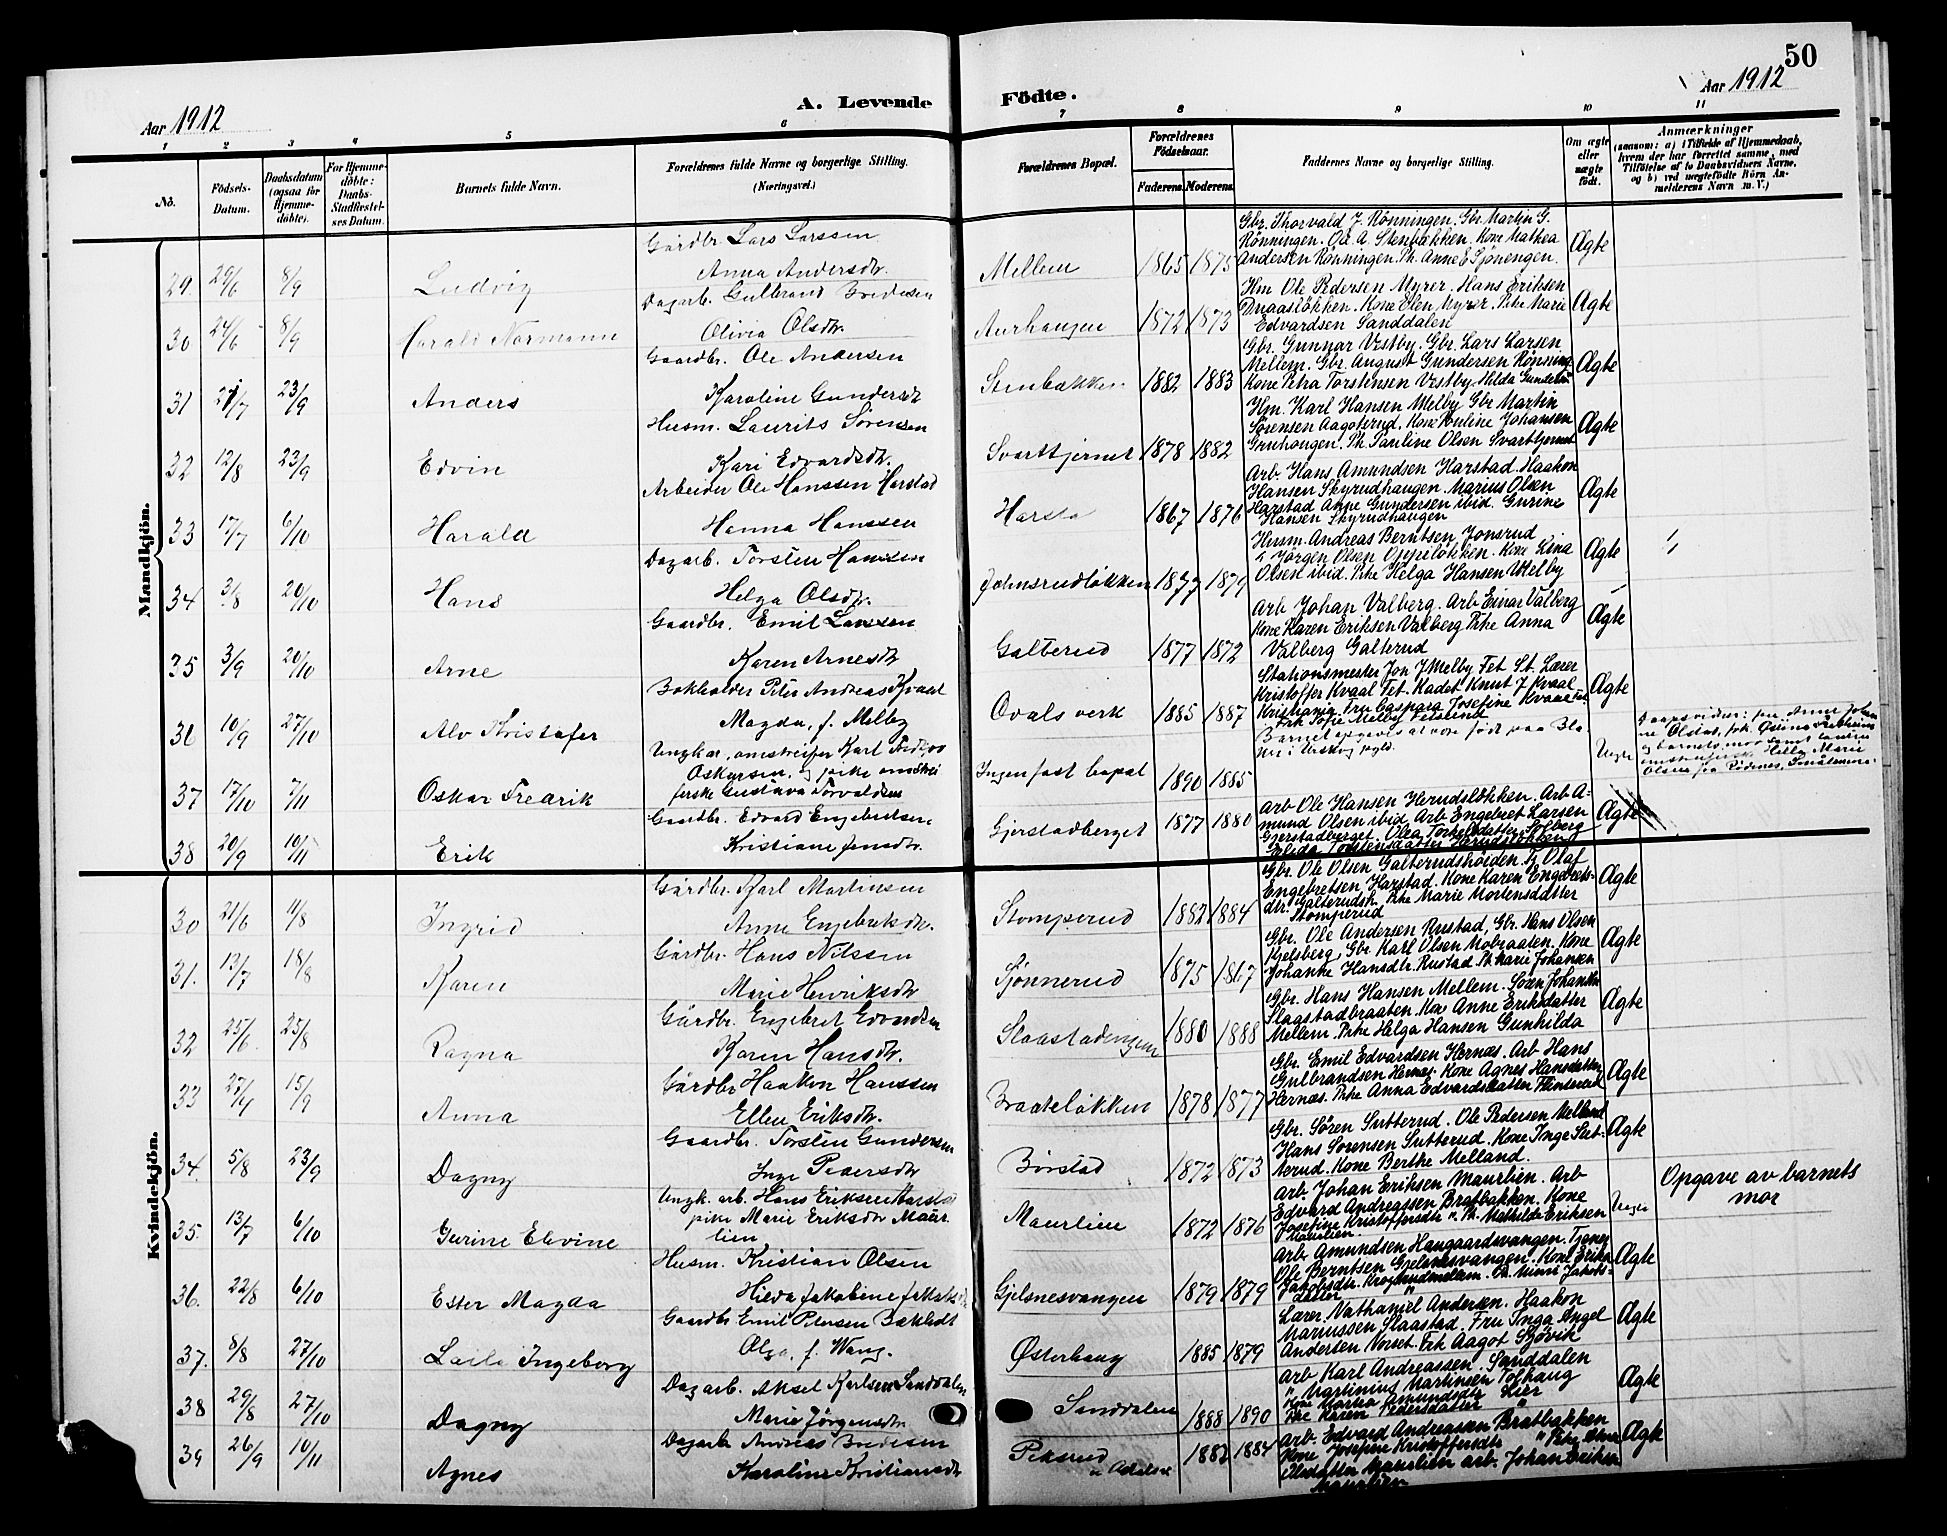 50
Aar 1912
A. Levende Födte.
Aar 1912
1 2 3 4 5 6 7 8 9 10 11
No.
Födsels-Datum.
Daabsdatum (ogsaa for Hjemme-döbte).
For Hjemme-döbte: Daabs-Stadfæstel-ses Datum.
Barnets fulde Navn.
Forældrenes fulde Navne og borgerlige Stilling.
(Næringsvei.)
Forældrenes Bopæl.
Forældrenes Födselsaar.
Faderens. Moderens.
Faddernes Navne og borgerlige Stilling.
Om ægte eller uægte födt.
Anmærkninger
(saasom: a) i Tilfælde af Hjemmedaab, hvem der har forrettet samme, med Tilföielse af to Daabsvidners Navne, og b) ved uægtefödte Börn Anmelderens Navn m. V.)
Mandkjön.
29. 29/6 8/9 Ludvig
Gårdbr. Lars Larssen
Anna Andersdtr.
Mellem 1865 1875
Gbr. Thorvald J. Rönningen. Gbr Martin G.
Rönningen. Ole A. Stenbakken. Kone Mathea
Andersen Rönningen. Pk. Anne E Sjönengen.
Ægte
30 24/6 8/9 Harald Normann
Dagarb. Gulbrand Bredesen
Olivia Olsdtr.
Aurhaugen 1872 1873
Hm Ole Pedersen Myrer. Hans Eriksen
Draasløkken. Kone Olen Myrer. Pike Marie
Edvardsen Sanddalen
Ægte
31 21/7 23/9 Anders
Gaardbr. Ole Andersen
Karoline Gundersdtr
Stenbækken 1882 1883
Gbr. Gunnar Vestby. Gbr. Lars Larsen
Mellem. Gbr. August Gundersen Rønning
Kone Petra Torstensen Vestby. Hilda
Ægte
32 12/8 23/9 Edvin
Husm. Laurits Sørensen
Kari Edvardsdtr.
Svarttjernet 1878 1882
Hm. Karl Hansen Melby Gbr Martin
Sørensen Aagoterud. Kone Pauline Johansen
Gruhougen. Pk. Pauline Olsen Svarttjernet
Ægte
33 17/7 6/10 Harald
Arbeider Ole Hanssen Harstad
Hanna Hanssen
Harsta 1867 1876
Arb. Hans Amundsen Harstad. Haakon
Hansen Skyrudhaugen. Marius Olsen
Harstad Anne Gundersen ibid. Gurine
Hansen Skyrudhaugen
Ægte
34 31/8 20/10 Hans
Dagarb. Torsten Hanssen
Helga Olsdtr.
Johnsrudløkken 1877 1879
Husm. Andreas Berntsen Jonsrud
" Jørgen Olsen Oppeløkken. Kone Lina
Olsen ibid. Pike Helga Hansen Melby
Ægte
35 3/9 20/10 Arne
Gaardbr. Emil Larssen
Karen Arnesdtr
Galterud 1877 1872
Arb Johan Valberg. Arb Einar Valberg
Kone Karen Eriksen Valberg Pike Anna
Valberg Galterud
Ægte
36 10/9 27/10 Alv Kristofer
Bokholder Peter Andreas Kvaal
Magda, f. Melby
Ovals verk 1885 1887
Stationsmester Jon J Melby Fet St. Lærer
Kristoffer Kvaal Fet. Kadet Knut J Kvaal
Kristiania Fru Caspara Josefine Kvaal Fet
Frk Sofie Melby Fetsund
Ægte
37 17/10 7/11 Oskar Fredrik
Ungkar, omstreifer Karl Fredrik
Oskarsen, og pike omstrei
ferske Gustava Torvaldsen
Ingen fast bopæl 1890 1885
Barnet opgaves at være født paa
i Urskog pgld.
Uegte
Daapsvidner:
38 20/9 10/11 Erik
Gaardbr. Edvard Engebretsen
Kristiane Jensdtr.
Gjerstadberget 1877 1880
Arb Ole Hansen Herudsløkken. Arb A-
mund Olsen ibid Arb Engebret Larsen
Gjerstadberget. Olea Torkelsdatter Solberg
Ægte
Kvindekjön.
30 21/6 11/8 Ingrid
Gårdbr. Karl Martinsen
Anne Engebretsdtr.
Stomperud 1882 1884
Gbr. Ole Olsen Galterudshöiden. Olaf
Engebretsen Harstad. Kone Karen Engebrets-
dtr. Galterudsh. Pike Marie Mortensdatter
Stomperud
Ægte
31. 13/7 18/8 Karen
Gårdbr. Hans Nilssen
Marie Henriksdtr
Sjønnerud 1875 1867
Gbr. Ole Andersen Rustad, Gbr. Hans Olsen
Kjelsberg, Gbr. Karl Olsen Mobraaten. Kone
Johanne Hansdtr. Rustad. Pk. Marie Johansen
Ægte
32 25/6 25/8 Ragna
Gårdbr. Engebret Edvardsen
Karen Hansdtr.
Slaastadengen 1880 1888
Gbr. Hans Hansen Mellem. Søren Johansen
Slagstadbraaten. Kone Anne Eriksdatter
Mellem. Pike Helga Hansen Gunhilda
Ægte
33 15/9 Anna
Gårdbr Haakon Hanssen
Ellen Eriksdtr.
Braateløkken 1878 1877
Gbr. Emil Edvardsen Hernæs. Arb Hans
Gulbrandsen Hernæs. Kone Agnes Hansdatter
Hernæs. Pike Anna Edvardsdatter
Ægte
34. 5/8 23/9 Dagny
Gaardbr. Torsten Gundersen
Inge Pedersdtr
Børstad 1872 1873
Gbr. Søren Sutterud. Ole Pedersen Melland
Hans Sørensen Sutterud. Kone Inge Sut-
terud. Kone Berthe Melland.
Ægte
35. 13/7 6/10 Gurine Elevine
Ungk. arb. Hans Eriksen Harstad
pike Marie Eriksdtr Maur
lien
Maurlien 1872 1876
Arb. Johan Eriksen Maurlien. Arb
Edvard Andreassen Bratbakken. Kone
Josefine Kristoffersdtr " Pk. Mathilde Eriksen
Maurlien.
Uegte
Opgave av barnets
mor
36. 22/8 6/10 Ester Magda
Husm. Kristian Olsen
Hilda Jakobine Jakobsdtr
Gjelsnesvangen 1879 1879
Arb Amundsen Haugaardsvangen. Tjener
Ole Berntsen Gjelsnesvangen. Kone Erika
Jakobsdtr. Pk. Mimi Jakobs-
datter
Ægte
37. 8/8 27/10 Laila Ingeborg
Gaardbr. Emil Petersen Bækkedt
Olga, f. Wang.
Østerhaug 1885 1879
Lærer Nathaniel Andersen. Haakon
Mariussen Slaastad. Fru Inga Angel
Andersen Vorset. Frk Aagot Sjövik
Ægte
38 29/8 27/10 Dagny
Dagarb. Aksel Karlsen Sanddalen
Marie Jørgensdtr.
Sanddalen 1888 1890
Arb Karl Andreassen. Sanddalen
" Martinius Martinsen Tolhaug
Kone Martha Amundsdtr Lier
Pike Karen Pedersdatter "
Ægte
39 26/9 10/11 Agnes
Dagarb Andreas Bredesen
Karoline Kristiansdtr
Peksrud 1882 1884
Arb. Edvard Andreassen Bratbakken
Kone Josefine Kristoffersdtr " Pike
Olsdatter Maurlien arb. Johan Eriksen
Maurlien
Ægte